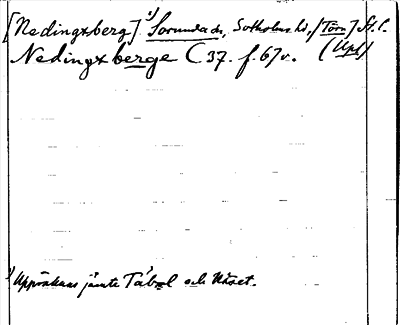 [Nedingxberg] 1) Sorunda sn, Sotholms hd, [Törn] St. l.
Nedingxberge C 37. f. 67v. (Upl)
1) Uppräknas jämte Täbol och Näset.